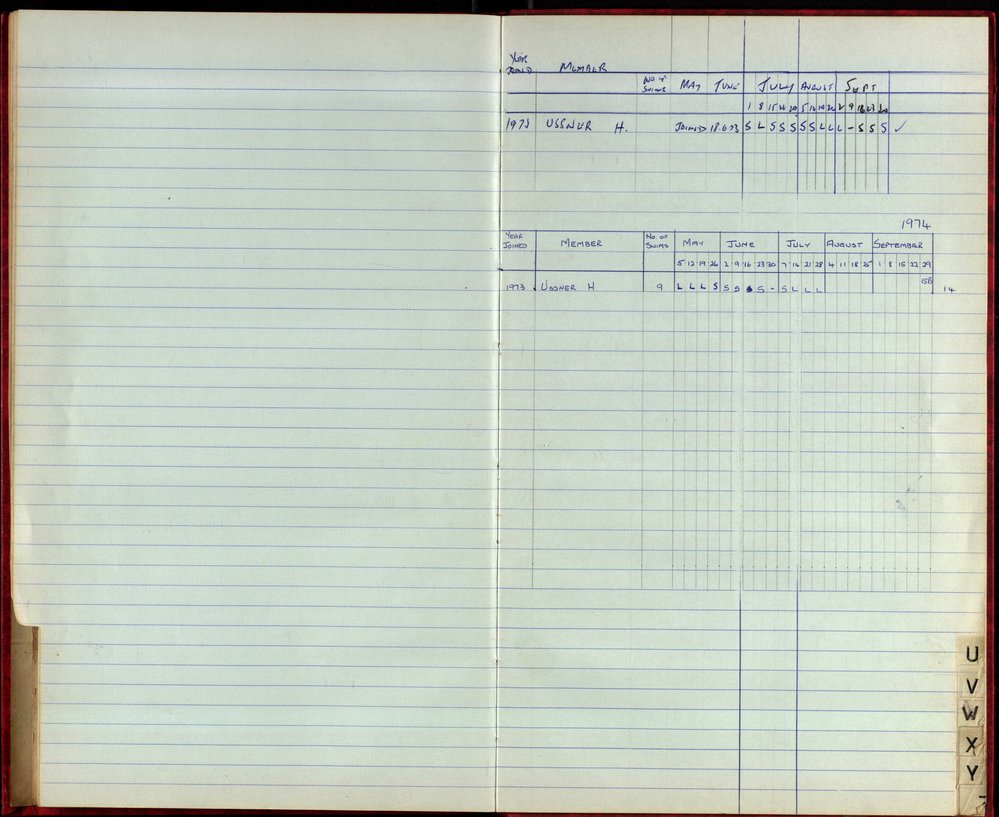 YEAR
JOINED MEMBER
NO OF SWIMS MAY JUNE JULY AUGUST SEPT
1 8 15 22 29 5 12 19 26 2 9 16 23 30
1973 USSNER H. JOINED 18.6.73 S L S S S S S L L L - S S S ✓
1974
YEAR JOINED MEMBER No. OF SWIMS MAY JUNE JULY AUGUST SEPTEMBER
5 12 19 26 2 9 16 23 30 7 14 21 28 4 11 18 25 1 8 15 22 29
156
1973 USSNER H 9 L L L S S S S S - S L L L 14
U
V
W
X
Y